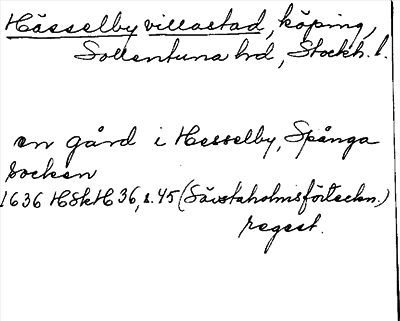 Hässelby villastad, köping,
Sollentuna hd, Stockh. l.
en gård i Hesselby, Spånga
socken
1636 HSkH 36, s. 45 (Sävstaholmsförteckn.)
regest.